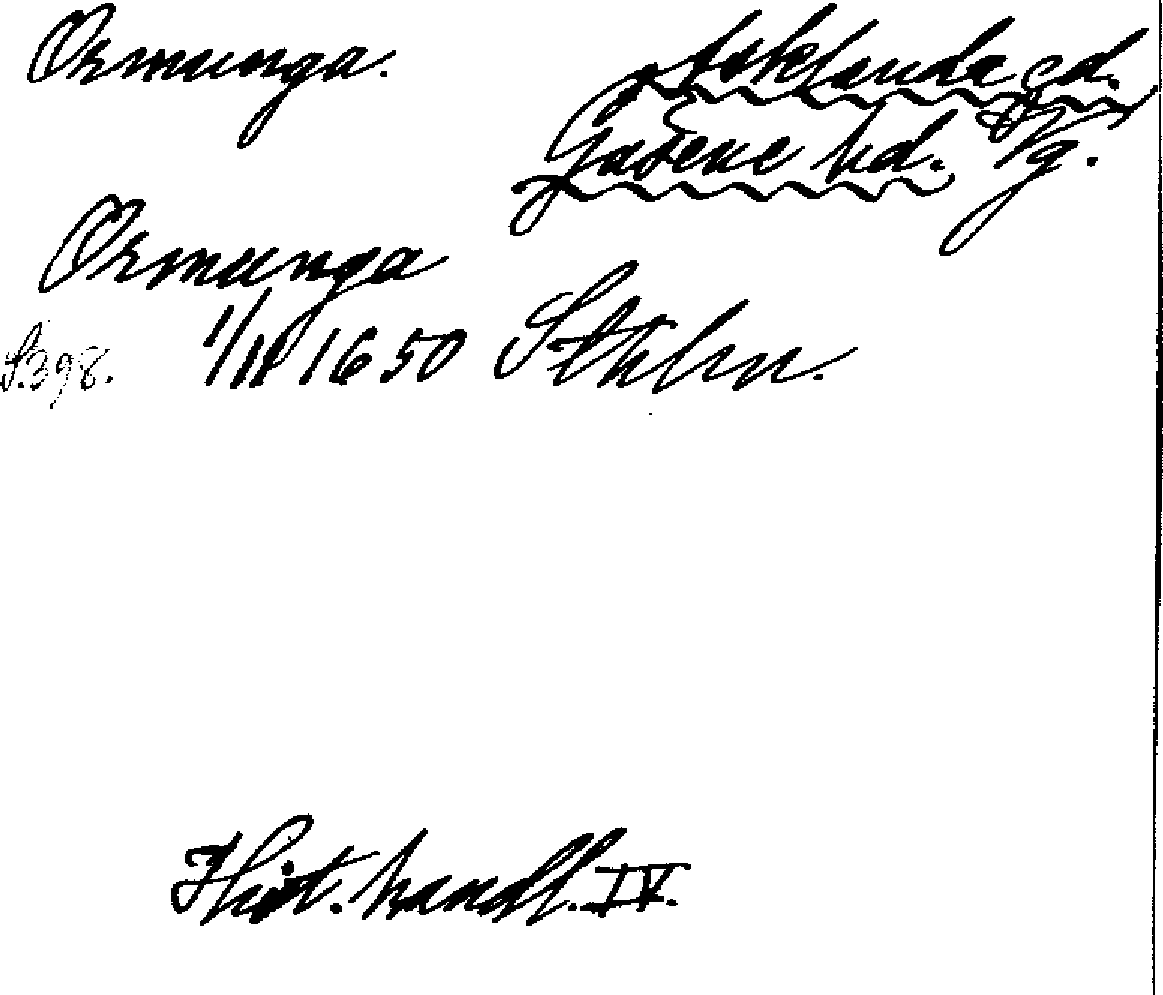 Ormunga. Asklanda sd.
Gäsene hd. Vg.
Ormunga
S.398. 1/11 1650 Sthlm.
Hist. handl. IV.